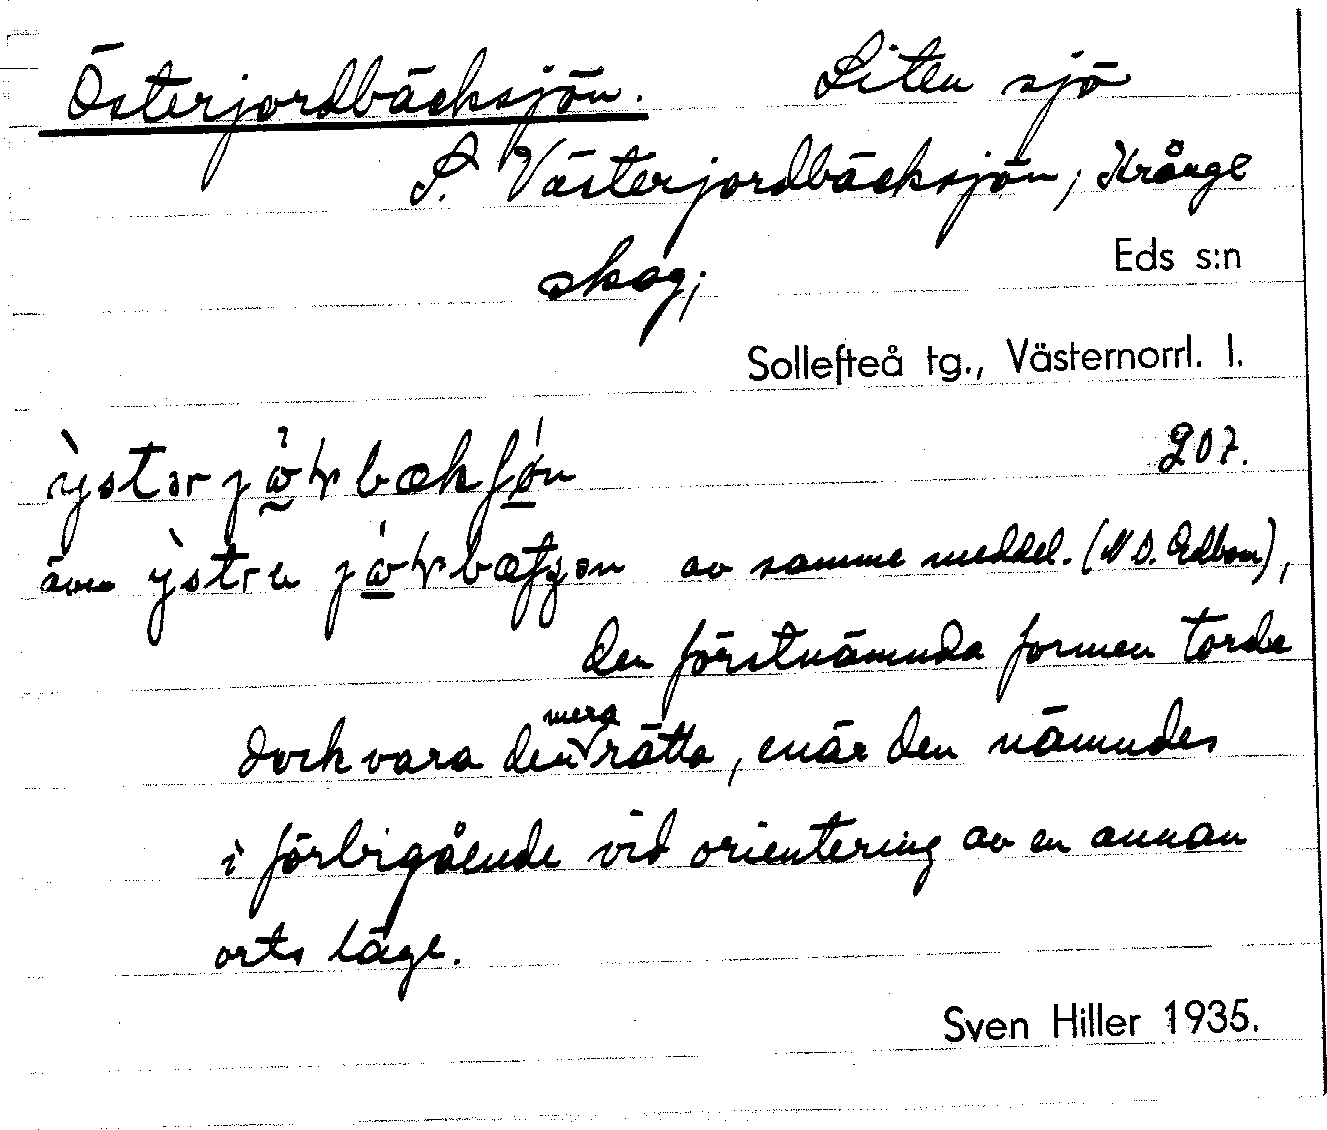 Österjordbäcksjön. Liten sjö
S. Västerjordbäcksjön, Krånge
skog;
Eds s:n
Sollefteå tg., Västernorrl. l.
207.
även av samme meddel. (N D. Edbom),
den förstnämnda formen torde
dock vara den mera rätta, enär den nämndes
i förbigående vid orientering av en annan
orts läge.
Sven Hiller 1935.